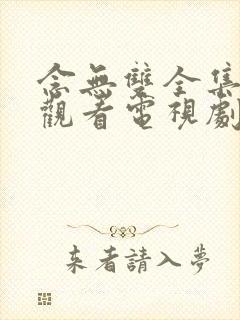 念無雙全集
觀看電視劇
來者請入夢